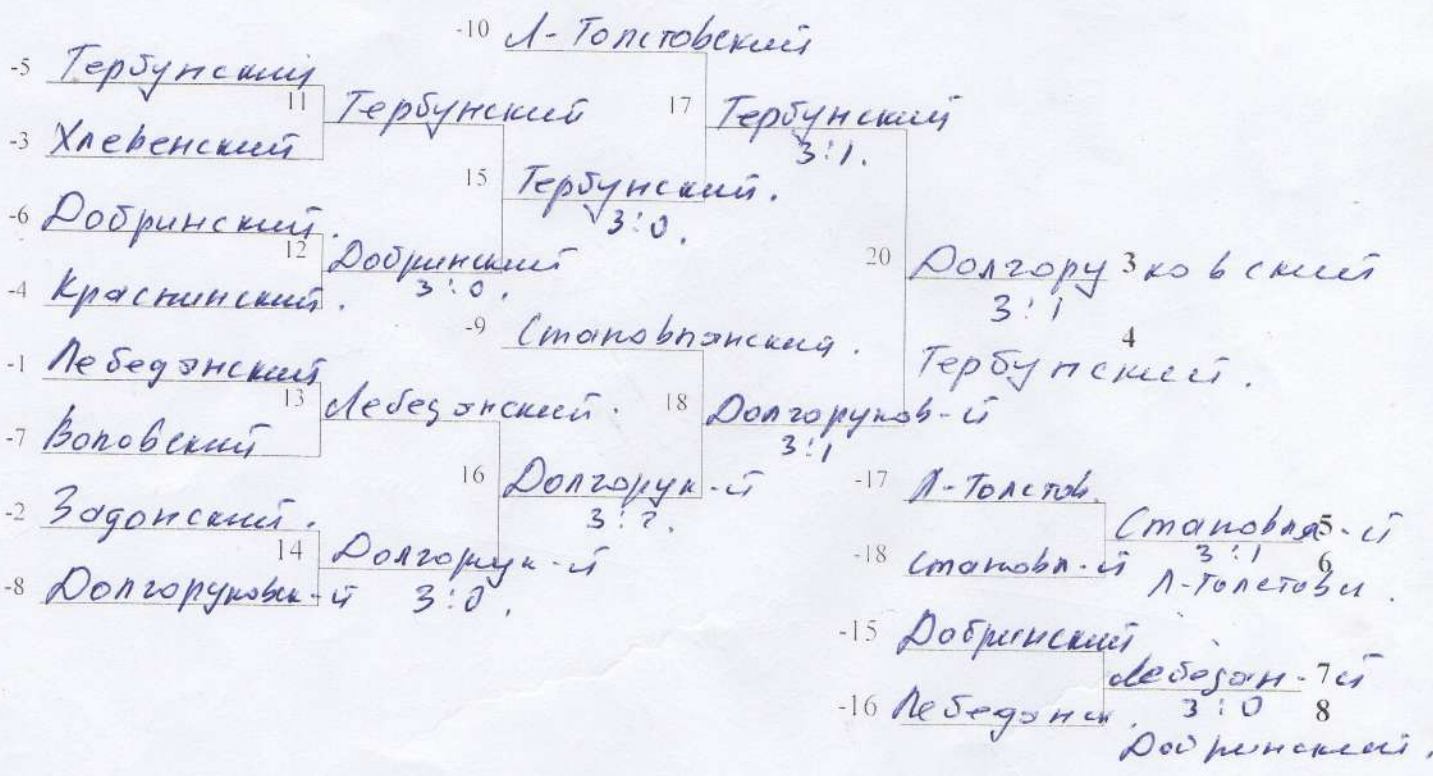 -10 Л-Толстовский
-5 Тербунский
11 Тербунский
17 Тербунский
3:1.
-3 Хлевенский
15 Тербунский.
3:0.
-6 Добринский.
12 Добринский
3:0.
20 Долгоруковский 3
3:1
-4 Краснинский.
-9 Становлянский.
4
Тербунский.
-1 Лебедянский
13 Лебедянский.
18 Долгоруков-й
3:1
-7 Воловский
16 Долгорук-й
3:2.
-17 Л-Толстов.
-2 Задонский.
Становля-й 5
3:1
14 Долгорук-й
3:0.
-18 Становл-й
6
Л-Толстовск.
-8 Долгоруковск-й
-15 Добринский
Лебедян-й 7
3:0
-16 Лебедянск.
8
Добринский.